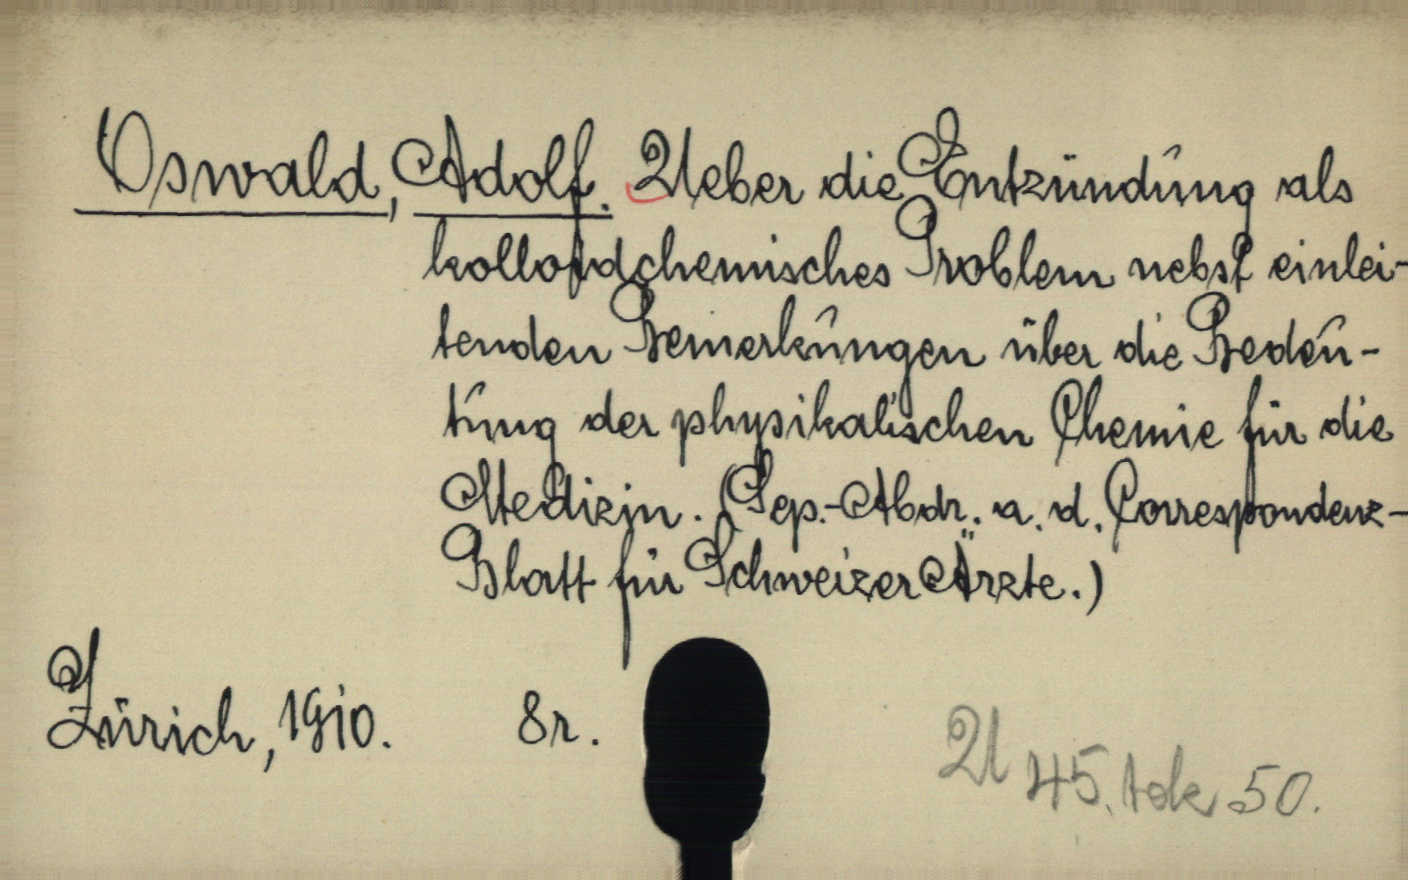 Oswald, Adolf. Ueber die Entzündung als
kolloidchemisches Problem nebst einlei-
tenden Bemerkungen über die Bedeu-
tung der physikalischen Chemie für die
Medizin. (Sep.-Abdr. a. d. Correspondenz-
Blatt für Schweizer Ärzte.)
Zürich, 1910. 8r.
U 45. tok 50.